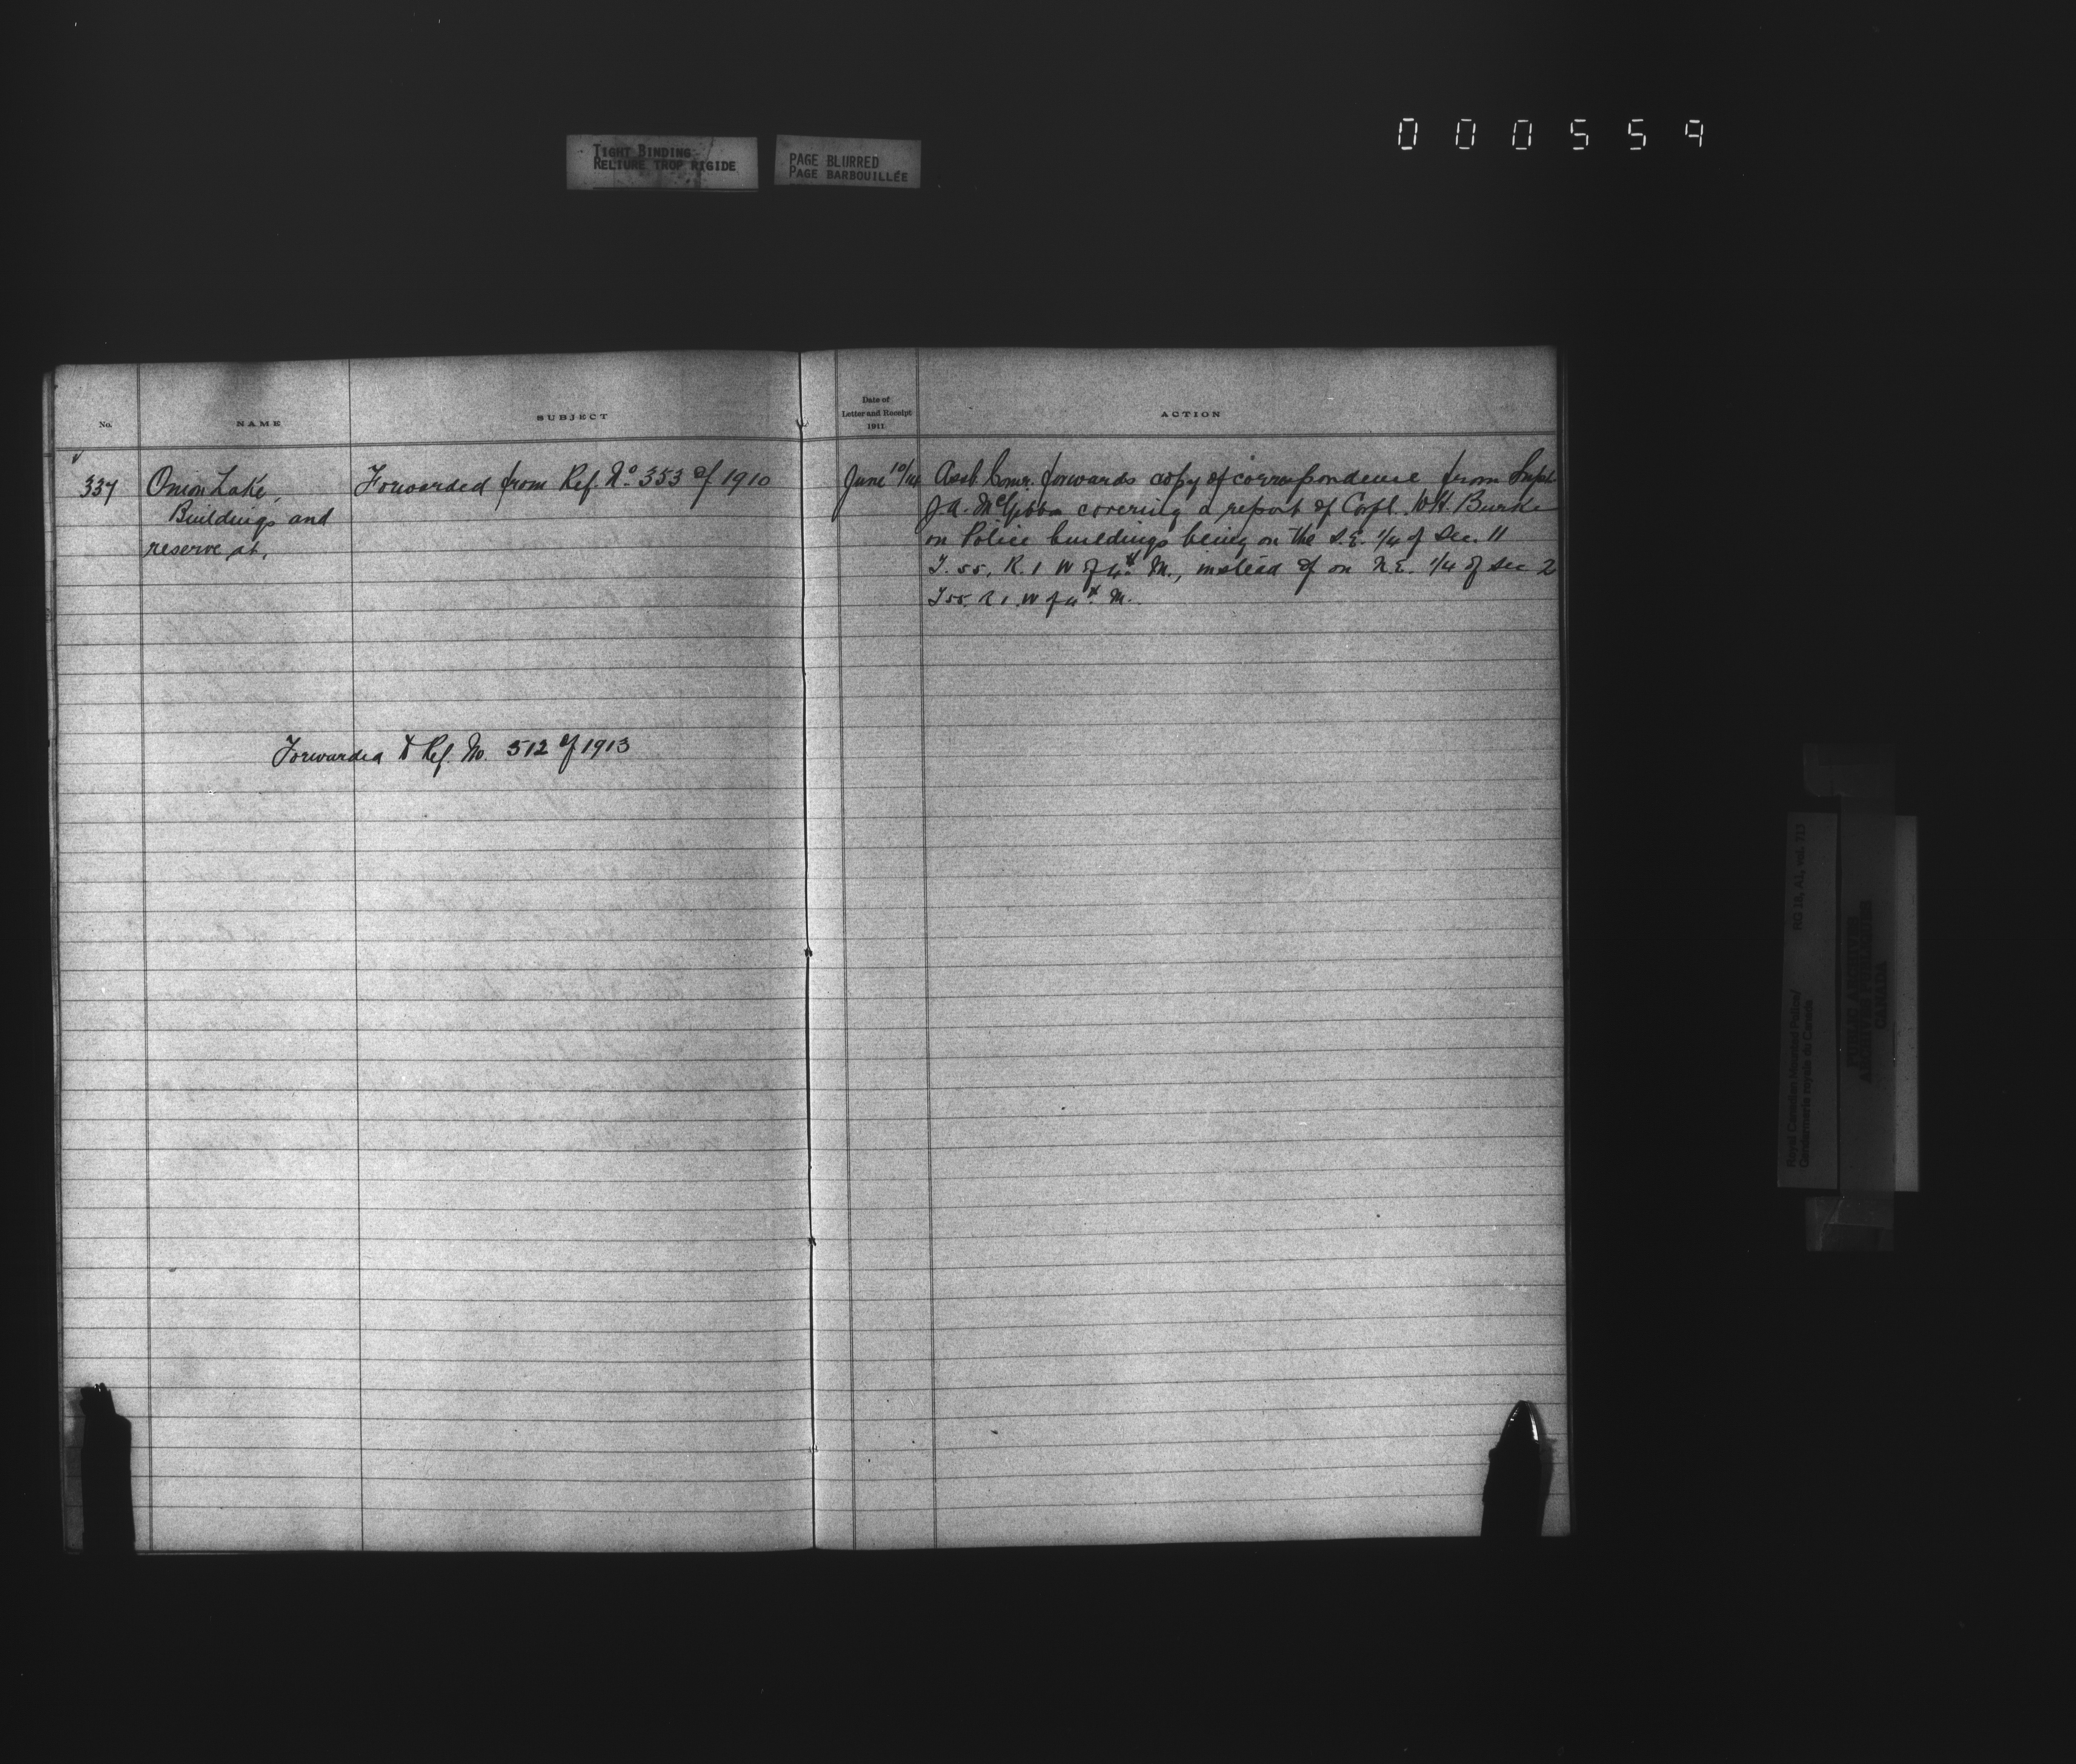 000559
TIGHT BINDING
RELIURE TROP RIGIDE
PAGE BLURRED
PAGE BARBOUILLÉE
No.
NAME
SUBJECT
Date of
Letter and Receipt
1911
ACTION
337
Onion Lake,
Buildings and
reserve at.
Forwarded from Ref. No. 353 of 1910
Forwarded to Ref. No. 512 of 1913
June 10/11
Asst. Comr. forwards copy of correspondence from Supt.
J.A. McGibbon covering a report of Corpl. W.H. Burke
on Police buildings being on the S.E. 1/4 of Sec. 11
T. 55, R. 1 W of 4th M., instead of on N.E. 1/4 of Sec 2
T 55. R 1. W of 4th M.
Royal Canadian Mounted Police/
Gendarmerie royale du Canada
RG 18, A1, vol. 713
PUBLIC ARCHIVES
ARCHIVES PUBLIQUES
CANADA